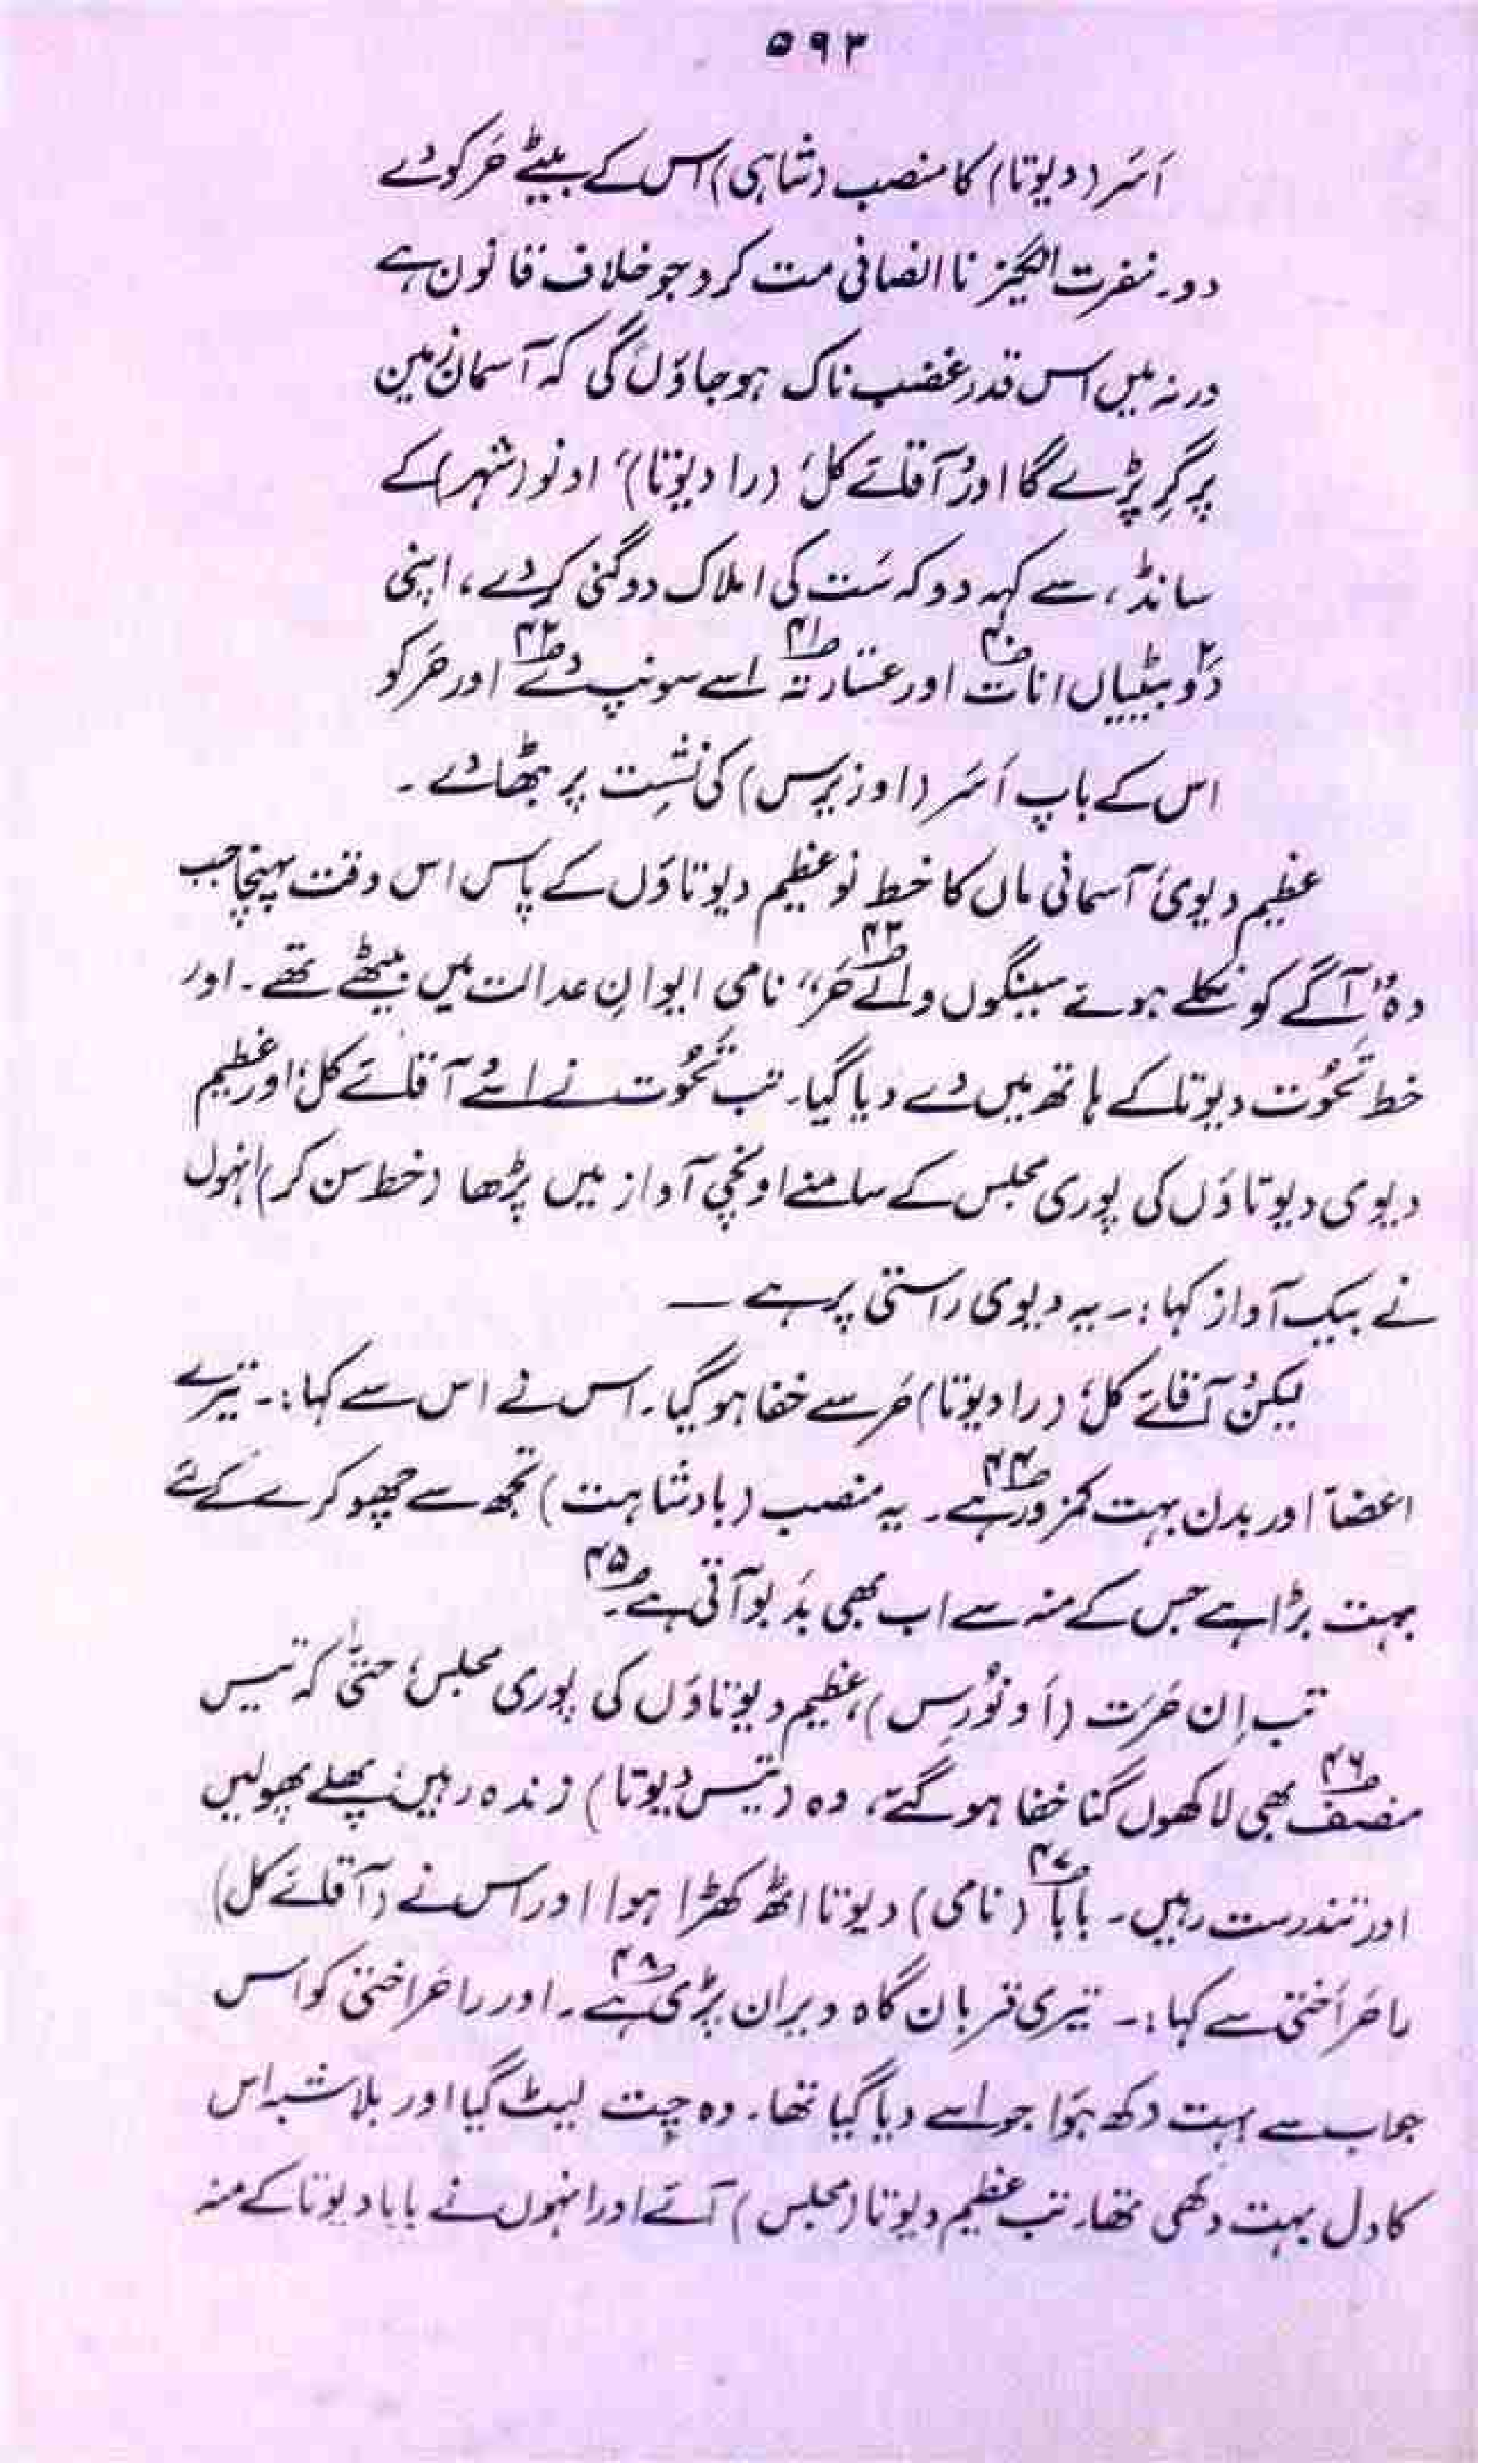 ۵۹۳
اَسَر (دیوتا) کا منصب (شاہی) اس کے بیٹے حَر کو دے
دو۔ نفرت انگیز نا انصافی مت کرو جو خلاف قانون ہے
ورنہ میں اس قدر غضب ناک ہو جاؤں گی کہ آسمان زمین
پر گِر پڑے گا اور ’آقائے کل‘ (را دیوتا)‘ اونو (شہر) کے
سانڈ، سے کہہ دو کہ سَت کی املاک دوگنی کر دے، اپنی
دَو۲ بیٹیاں انات۴۰ اور عشتارتہ۴۱ اسے سونپ دے۴۲ اور حَر کو
اس کے باپ اَسَر (اوزیرس) کی نشِست پر بٹھا دے ۔
عظیم دیوی‘ آسمانی ماں کا خط نو عظیم دیوتاؤں کے پاس اس وقت پہنچا جب
وہ ”آگے کو نکلے ہوئے سینگوں والے حَر۴۳“ نامی ایوانِ عدالت میں بیٹھے تھے ۔ اور
خط تَحُوت دیوتا کے ہاتھ میں دے دیا گیا۔ تب تَحُوت نے اسے ’آقائے کل‘ اور عظیم
دیوی دیوتاؤں کی پوری مجلس کے سامنے اونچی آواز میں پڑھا (خط سن کر) انہوں
نے بیک آواز کہا :۔ یہ دیوی راستی پر ہے ــ
لیکن ’آقائے کل‘ (را دیوتا) حَر سے خفا ہو گیا۔ اس نے اس سے کہا :۔ تیرے
اعضآ اور بدن بہت کمزور ہے۴۴۔ یہ منصب (بادشاہت) تجھ سے چھوکرے کے لئے
بہت بڑا ہے جس کے منہ سے اب بھی بَد بو آتی ہے۴۵۔
تب اِن حَرَت (اَونُورِس)، عظیم دیوتاؤں کی پوری مجلس‘ حتیٰ کہ تیس
منصف۴۶ بھی لاکھوں گنا خفا ہو گئے، وہ (تیس دیوتا) زندہ رہیں‘ پھلے پھولیں
اور تندرست رہیں ۔ بابا۴۷ (نامی) دیوتا اٹھ کھڑا ہوا اور اس نے (آقائے کل)
را حَر اَختی سے کہا :۔ تیری قربان گاہ ویران پڑی ہے۴۸۔ اور را حَر اختی کو اس
جواب سے بہت دکھ ہُوا جو اسے دیا گیا تھا۔ وہ چِت لیٹ گیا اور بلا شبہ اس
کا دل بہت دکھی تھا۔ تب عظیم دیوتا (مجلس) آئے اور انہوں نے بابا دیوتا کے منہ